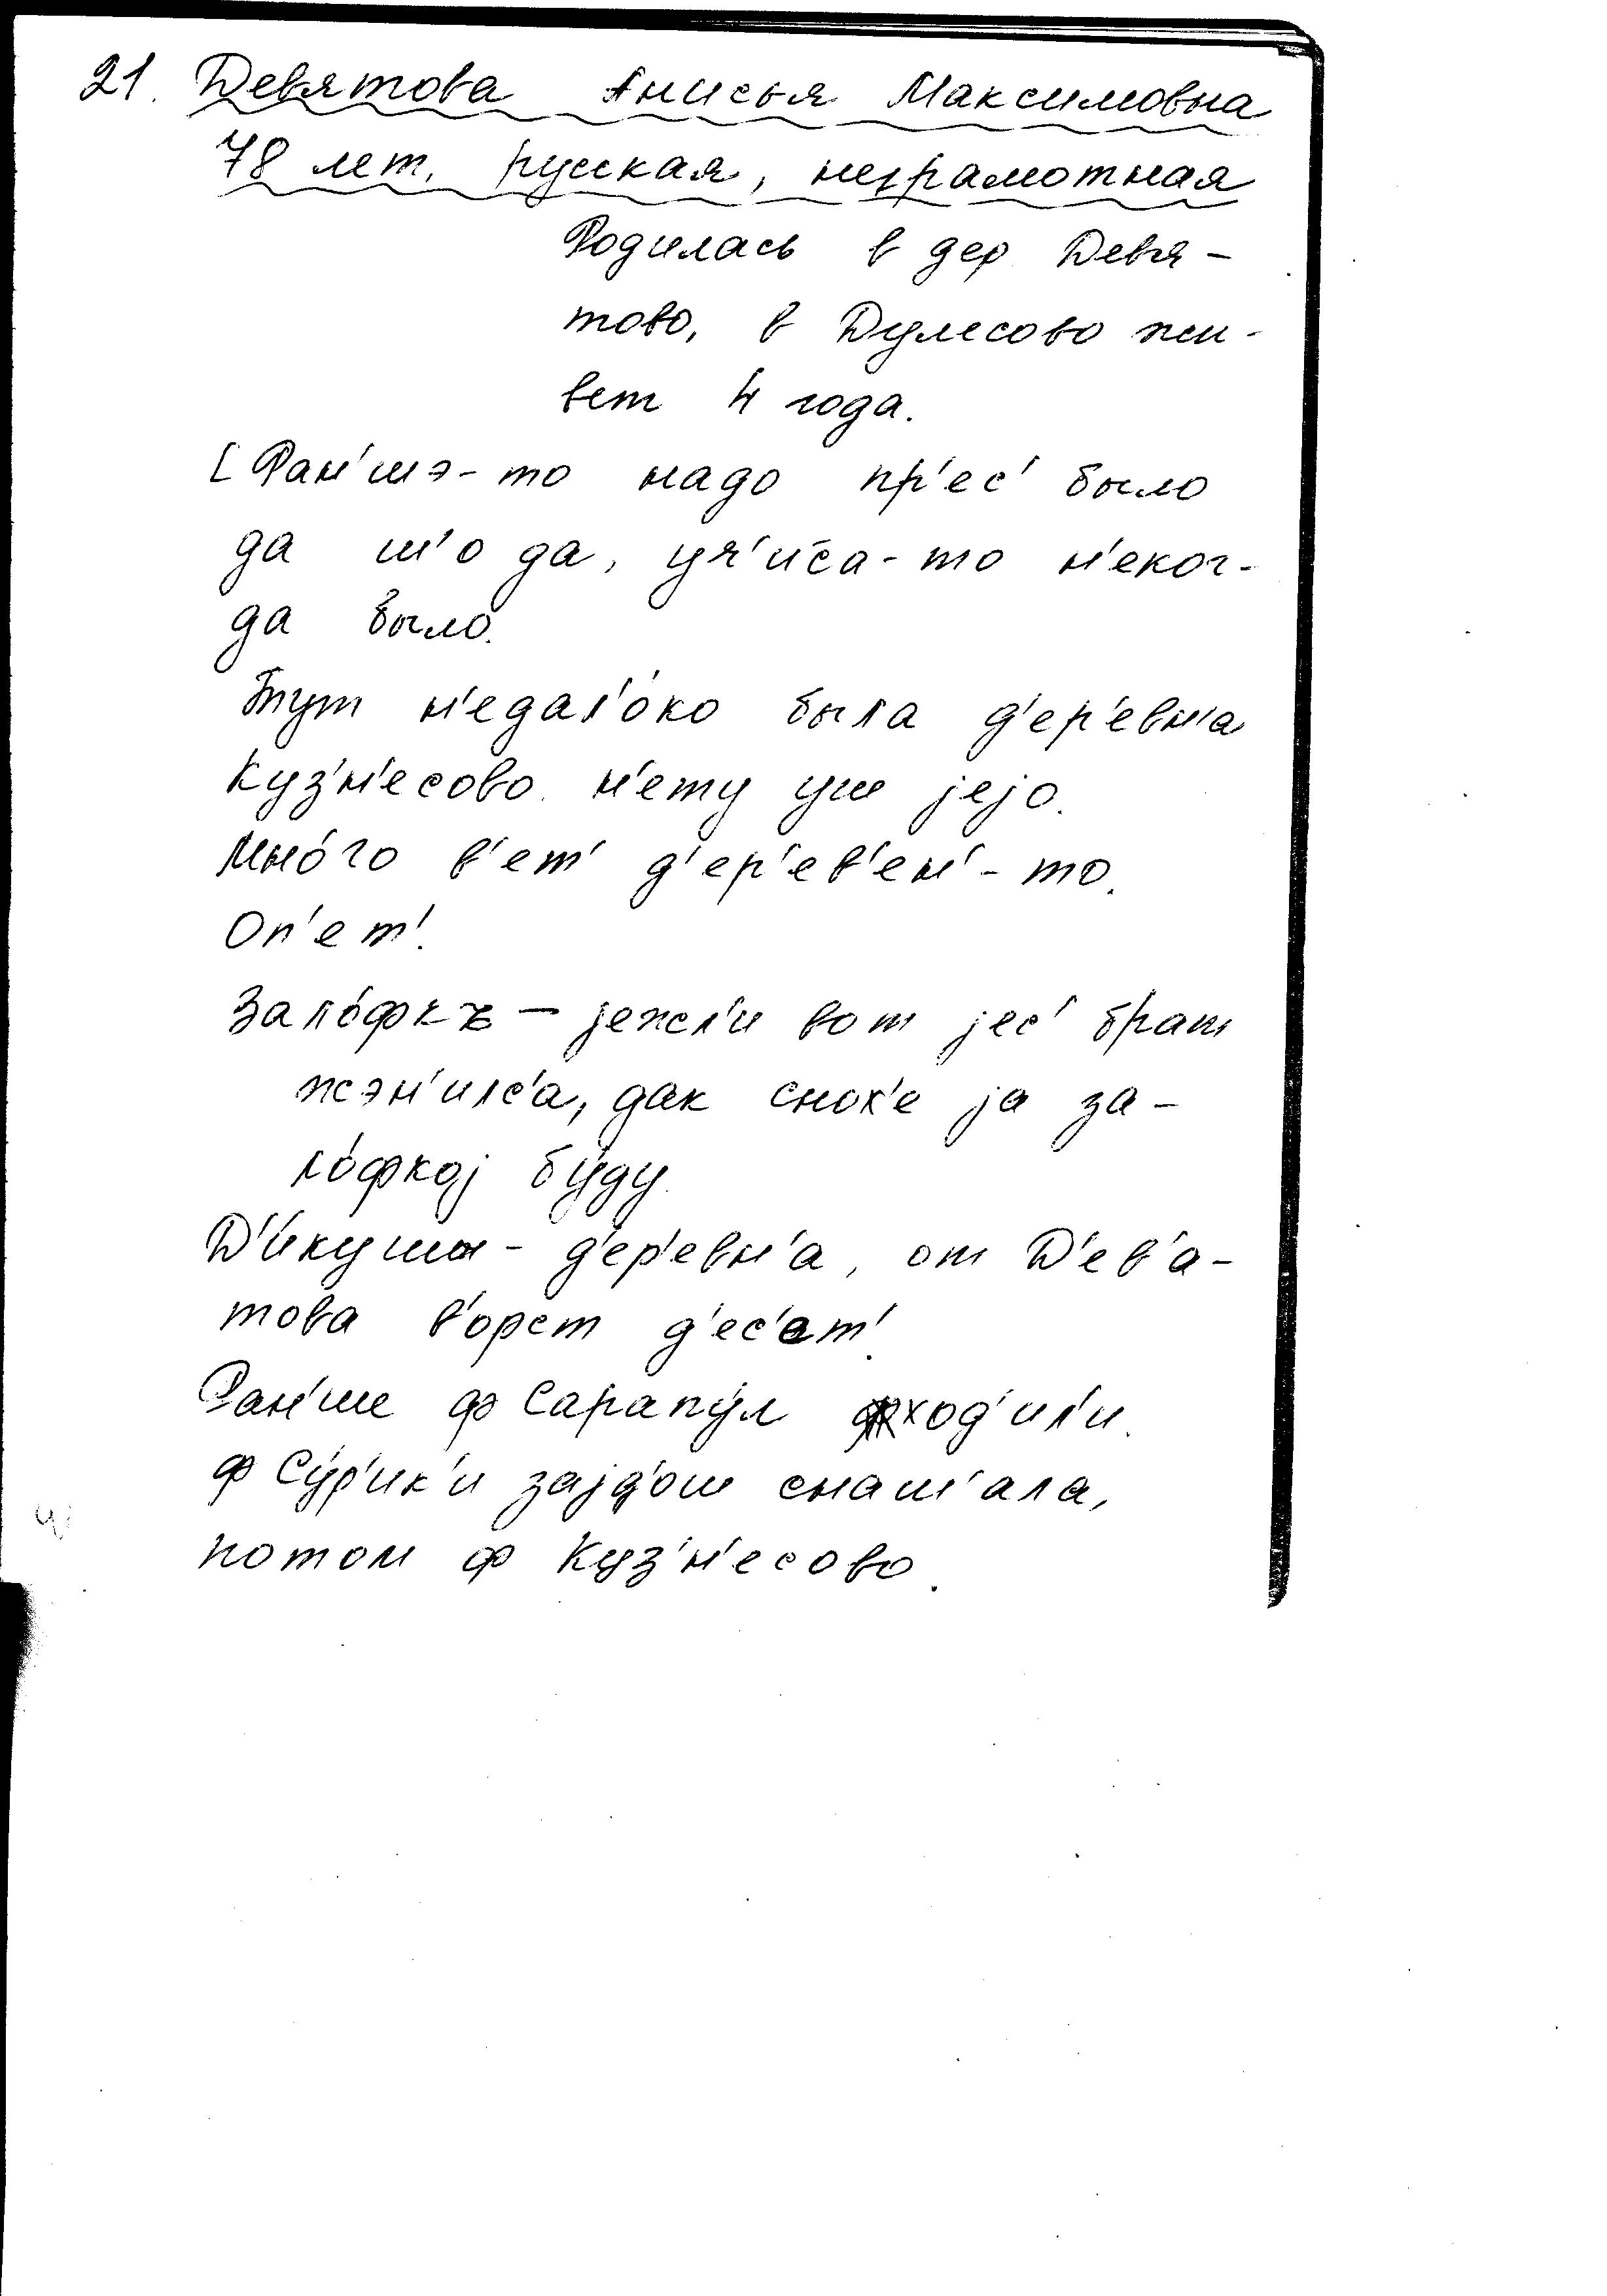 21. Девятова Анисья Максимовна
78 лет, русская, неграмотная
Родилась в дер. Девя-
тово, в Дулесово жи-
вет 4 года.
[Ран'шэ-то надо пр'ес' было
да ш'о да, уч'ис'а-то н'еког-
да было.
Тут н'едал'о́ко была д'ер'евн'а
Куз'н'есово. н'ету уш jejо.
Мно́го в'ет' д'ер'ев'ен'-то.
Оп'ет'.
Зало́фкъ – jежл'и вот jес' брат
жэн'илс'а, дак снох'е ja за-
ло́фкоj бу́ду.
Д'и́куши – д'ер'евн'а, от Д'ев'а-
това в'орст д'ес'ет'.
Ран'ше ф Сарапу́л ход'ил'и.
ф Су́р'ик'и заjд'ош снаш'ала,
потом ф Куз'н'есово.